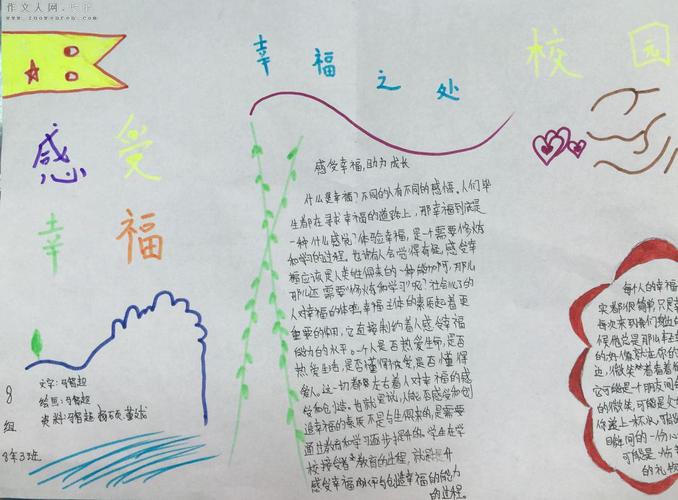 作文人网
www.zuowenren.com
幸福之处
校园
感受
幸福
感受幸福,助力成长
什么是幸福?不同的人有不同的感悟。人们毕
生都在寻求幸福的道路上,那幸福到底是
一种什么感觉?体验幸福,是一个需要修炼
和学习的过程。也许有人会觉得有疑,感受幸
福应该是人类性俱来的一种能力啊,那儿
那儿还需要"修炼和学习"呢?社会化了的
人对幸福的体验,幸福主体的素质起着更
重要的作用,它直接制约着人感受幸福
能力的水平。一个人是否热爱生命,是否
热爱生活,是否懂得被爱,是否懂得
爱人。这一切都左右着人对幸福的感
受和创造。也就是说,人能否感受和创
造幸福的素质不是与生俱来的,是需要
通过教育和学习逐步提炼。学生在学
校接受着教育的过程,就是提升
感受幸福的水平与创造幸福的能力
的过程。
8
组
文字:马智超
绘画:马智超
资料:马智超
8年3班
每个人的幸福
实都很简单,只是
每次来到
的好像
边,微笑
它可能是一个朋友间
的微笑,可能是
你盖上一杯
瞬间的一份心
可能是一份幸
的礼物